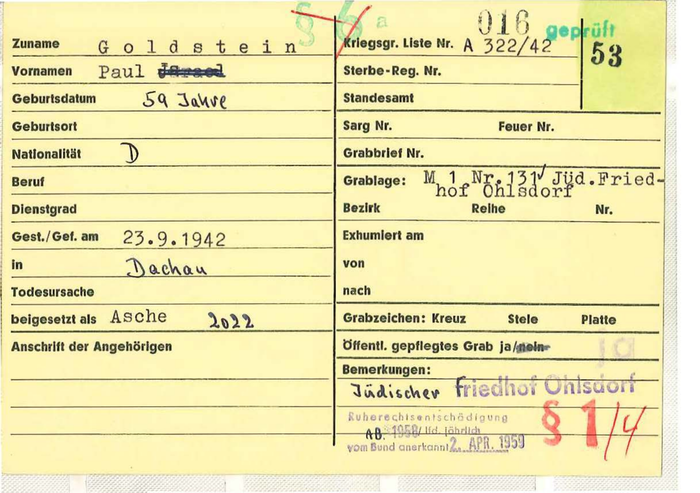 § 6 a
016
geprüft
53
Zuname Goldstein
Vornamen Paul Israel
Geburtsdatum 59 Jahre
Geburtsort
Nationalität D
Beruf
Dienstgrad
Gest./Gef. am 23.9.1942
in Dachau
Todesursache
beigesetzt als Asche 2022
Anschrift der Angehörigen
Kriegsgr. Liste Nr. A 322/42
Sterbe-Reg. Nr.
Standesamt
Sarg Nr. Feuer Nr.
Grabbrief Nr.
Grablage: M 1 Nr.131 Jüd.Fried-
hof Ohlsdorf
Bezirk Reihe Nr.
Exhumiert am
von
nach
Grabzeichen: Kreuz Stele Platte
Öffentl. gepflegtes Grab ja/nein
Bemerkungen:
Jüdischer Friedhof Ohlsdorf
Ruherechtsentschädigung
AB. 1958/ lfd. jährlich
vom Bund anerkannt 2. APR. 1959
§ 1/4